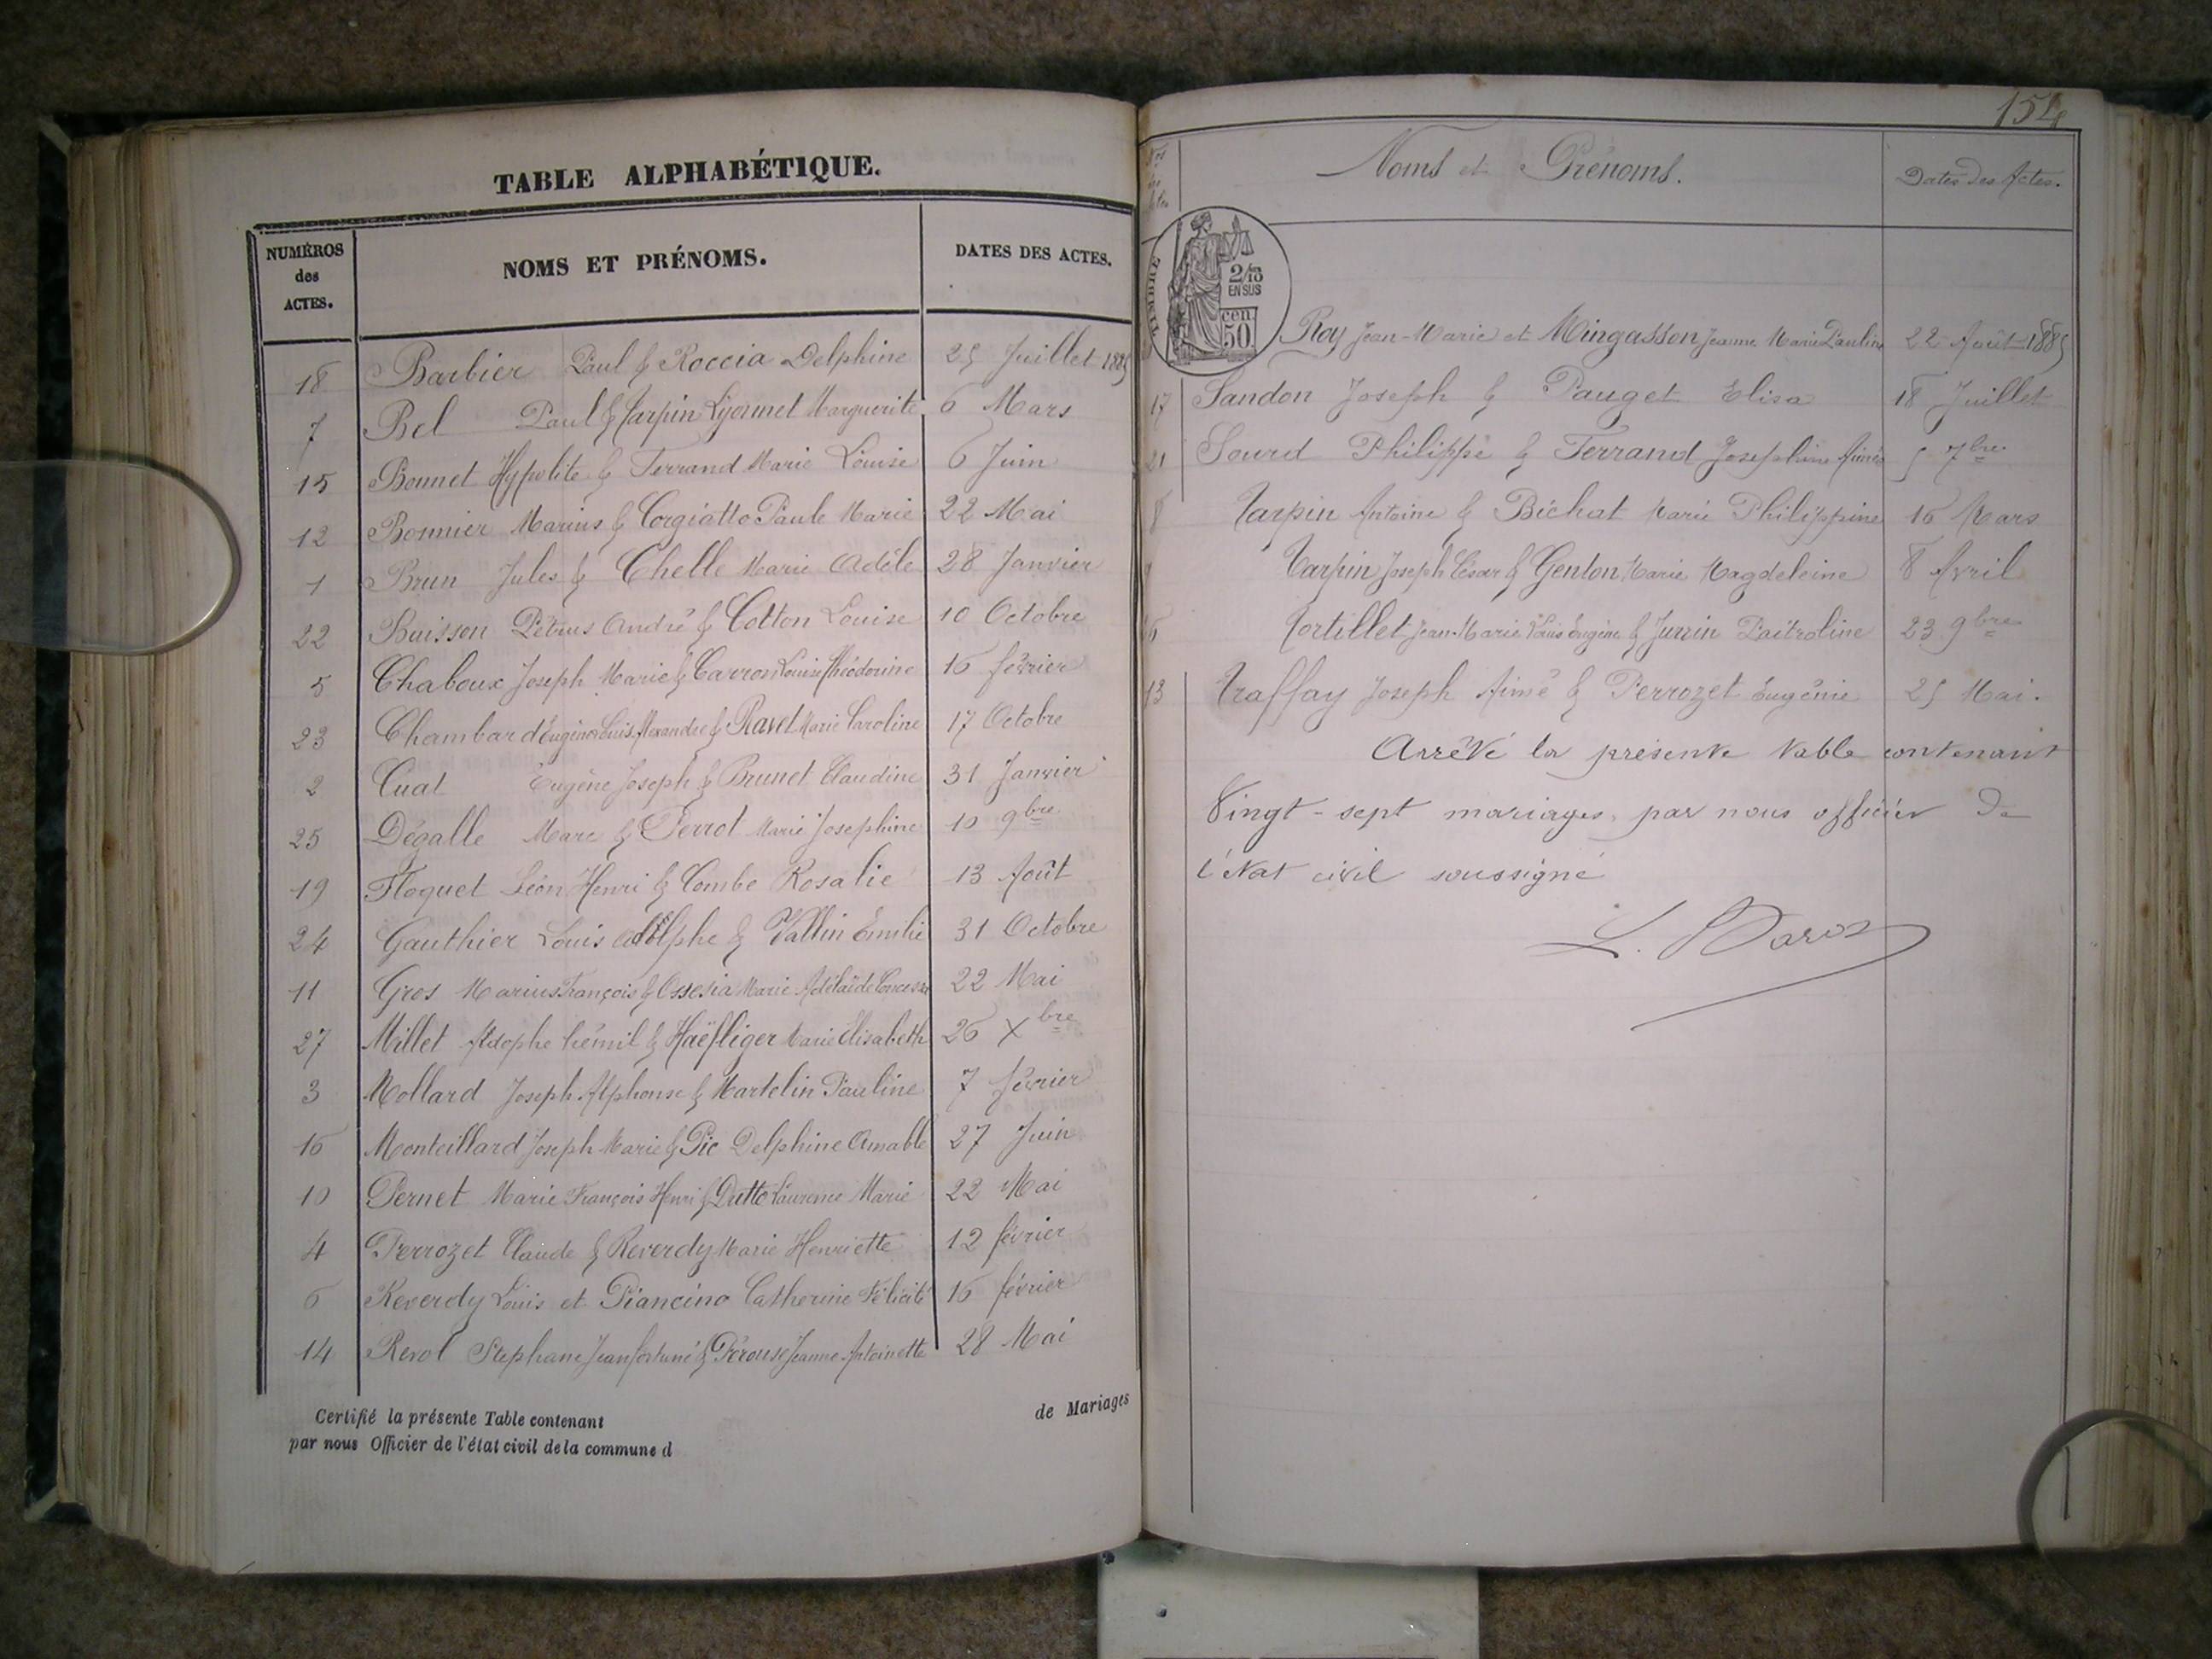 TABLE ALPHABÉTIQUE.
NUMÉROS des ACTES.
NOMS ET PRÉNOMS.
DATES DES ACTES.
18 Barbier Paul & Roccia Delphine 25 Juillet 1885
7 Bel Paul & Tarpin Lyonnet Marguerite 6 Mars
15 Bonnet Hypolite & Ferrand Marie Louise 6 Juin
12 Bonnier Marius & Corgiatto Paule Marie 22 Mai
1 Brun Jules & Chelle Marie Adèle 28 Janvier
22 Buisson Pétrus André & Cotton Louise 10 Octobre
5 Chaboux Joseph Marie & Carron Louise Théodorine 16 février
23 Chambard Eugène Louis Alexandre & Ravet Marie Caroline 17 Octobre
2 Cuat Eugène Joseph & Brunet Claudine 31 Janvier
25 Dégalle Marc & Perrot Marie Josephine 10 9bre
19 Floquet Léon Henri & Combe Rosalie 13 Août
24 Gauthier Louis Adolphe & Vallin Emilie 31 Octobre
11 Gros Marius François & Ossesia Marie Adélaïde 22 Mai
27 Millet Adophe & Haëfliger Marie Elisabeth 26 Xbre
3 Mollard Joseph Alphonse & Martelin Pauline 7 février
16 Monteillard Joseph Marie & Pic Delphine Amable 27 Juin
10 Pernet Marie François Henri & Dutto Laurence Marie 22 Mai
4 Perrozet Claude & Reverdy Marie Henriette 12 février
6 Reverdy Louis et Piancino Catherine Félicité 16 février
14 Revol Stephane Jean fortuné & Pérouse Jeanne Antoinette 28 Mai
Certifié la présente Table contenant de Mariages
par nous Officier de l'état civil de la commune d
154
Noms et Prénoms.
Dates des Actes.
TIMBRE
2/10
EN SUS
50 cen.
Roy Jean-Marie et Mingasson Jeanne Marie Pauline 22 Août 1885
17 Sandon Joseph & Pauget Elisa 18 Juillet
21 Sourd Philippe & Ferrand Josephine Aimée 5 7bre
8 Tarpin Antoine & Bichat Marie Philippine 16 Mars
Tarpin Joseph César & Genton Marie Magdeleine 8 Avril
6 Tortillet Jean-Marie Louis Eugène & Jurrin 23 9bre
13 Traffay Joseph Aimé & Perrozet Eugénie 25 Mai.
Arrêté la présente table contenant
Vingt-sept mariages, par nous officier de
l'état civil soussigné